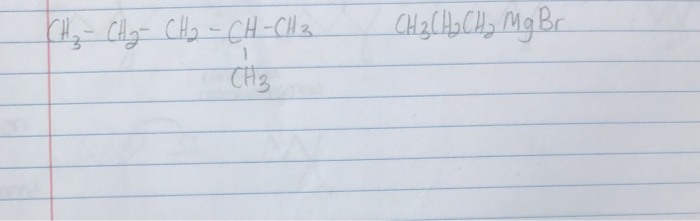 CH3- CH2- CH2 - CH -CH3 CH3CH2CH2 MgBr
|
CH3